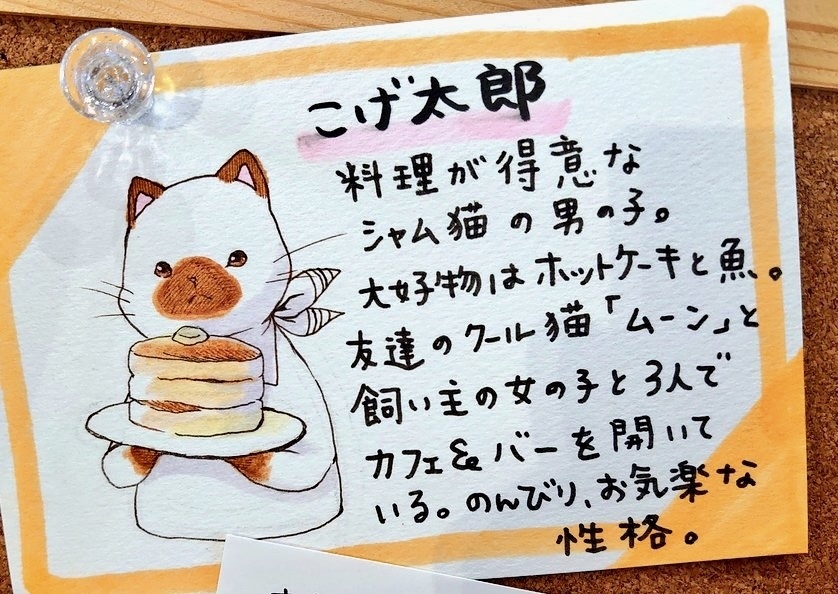 こげ太郎
料理が得意な
シャム猫の男の子。
大好物はホットケーキと魚。
友達のクール猫「ムーン」と
飼い主の女の子と3人で
カフェ&バーを開いて
いる。のんびり、お気楽な
性格。